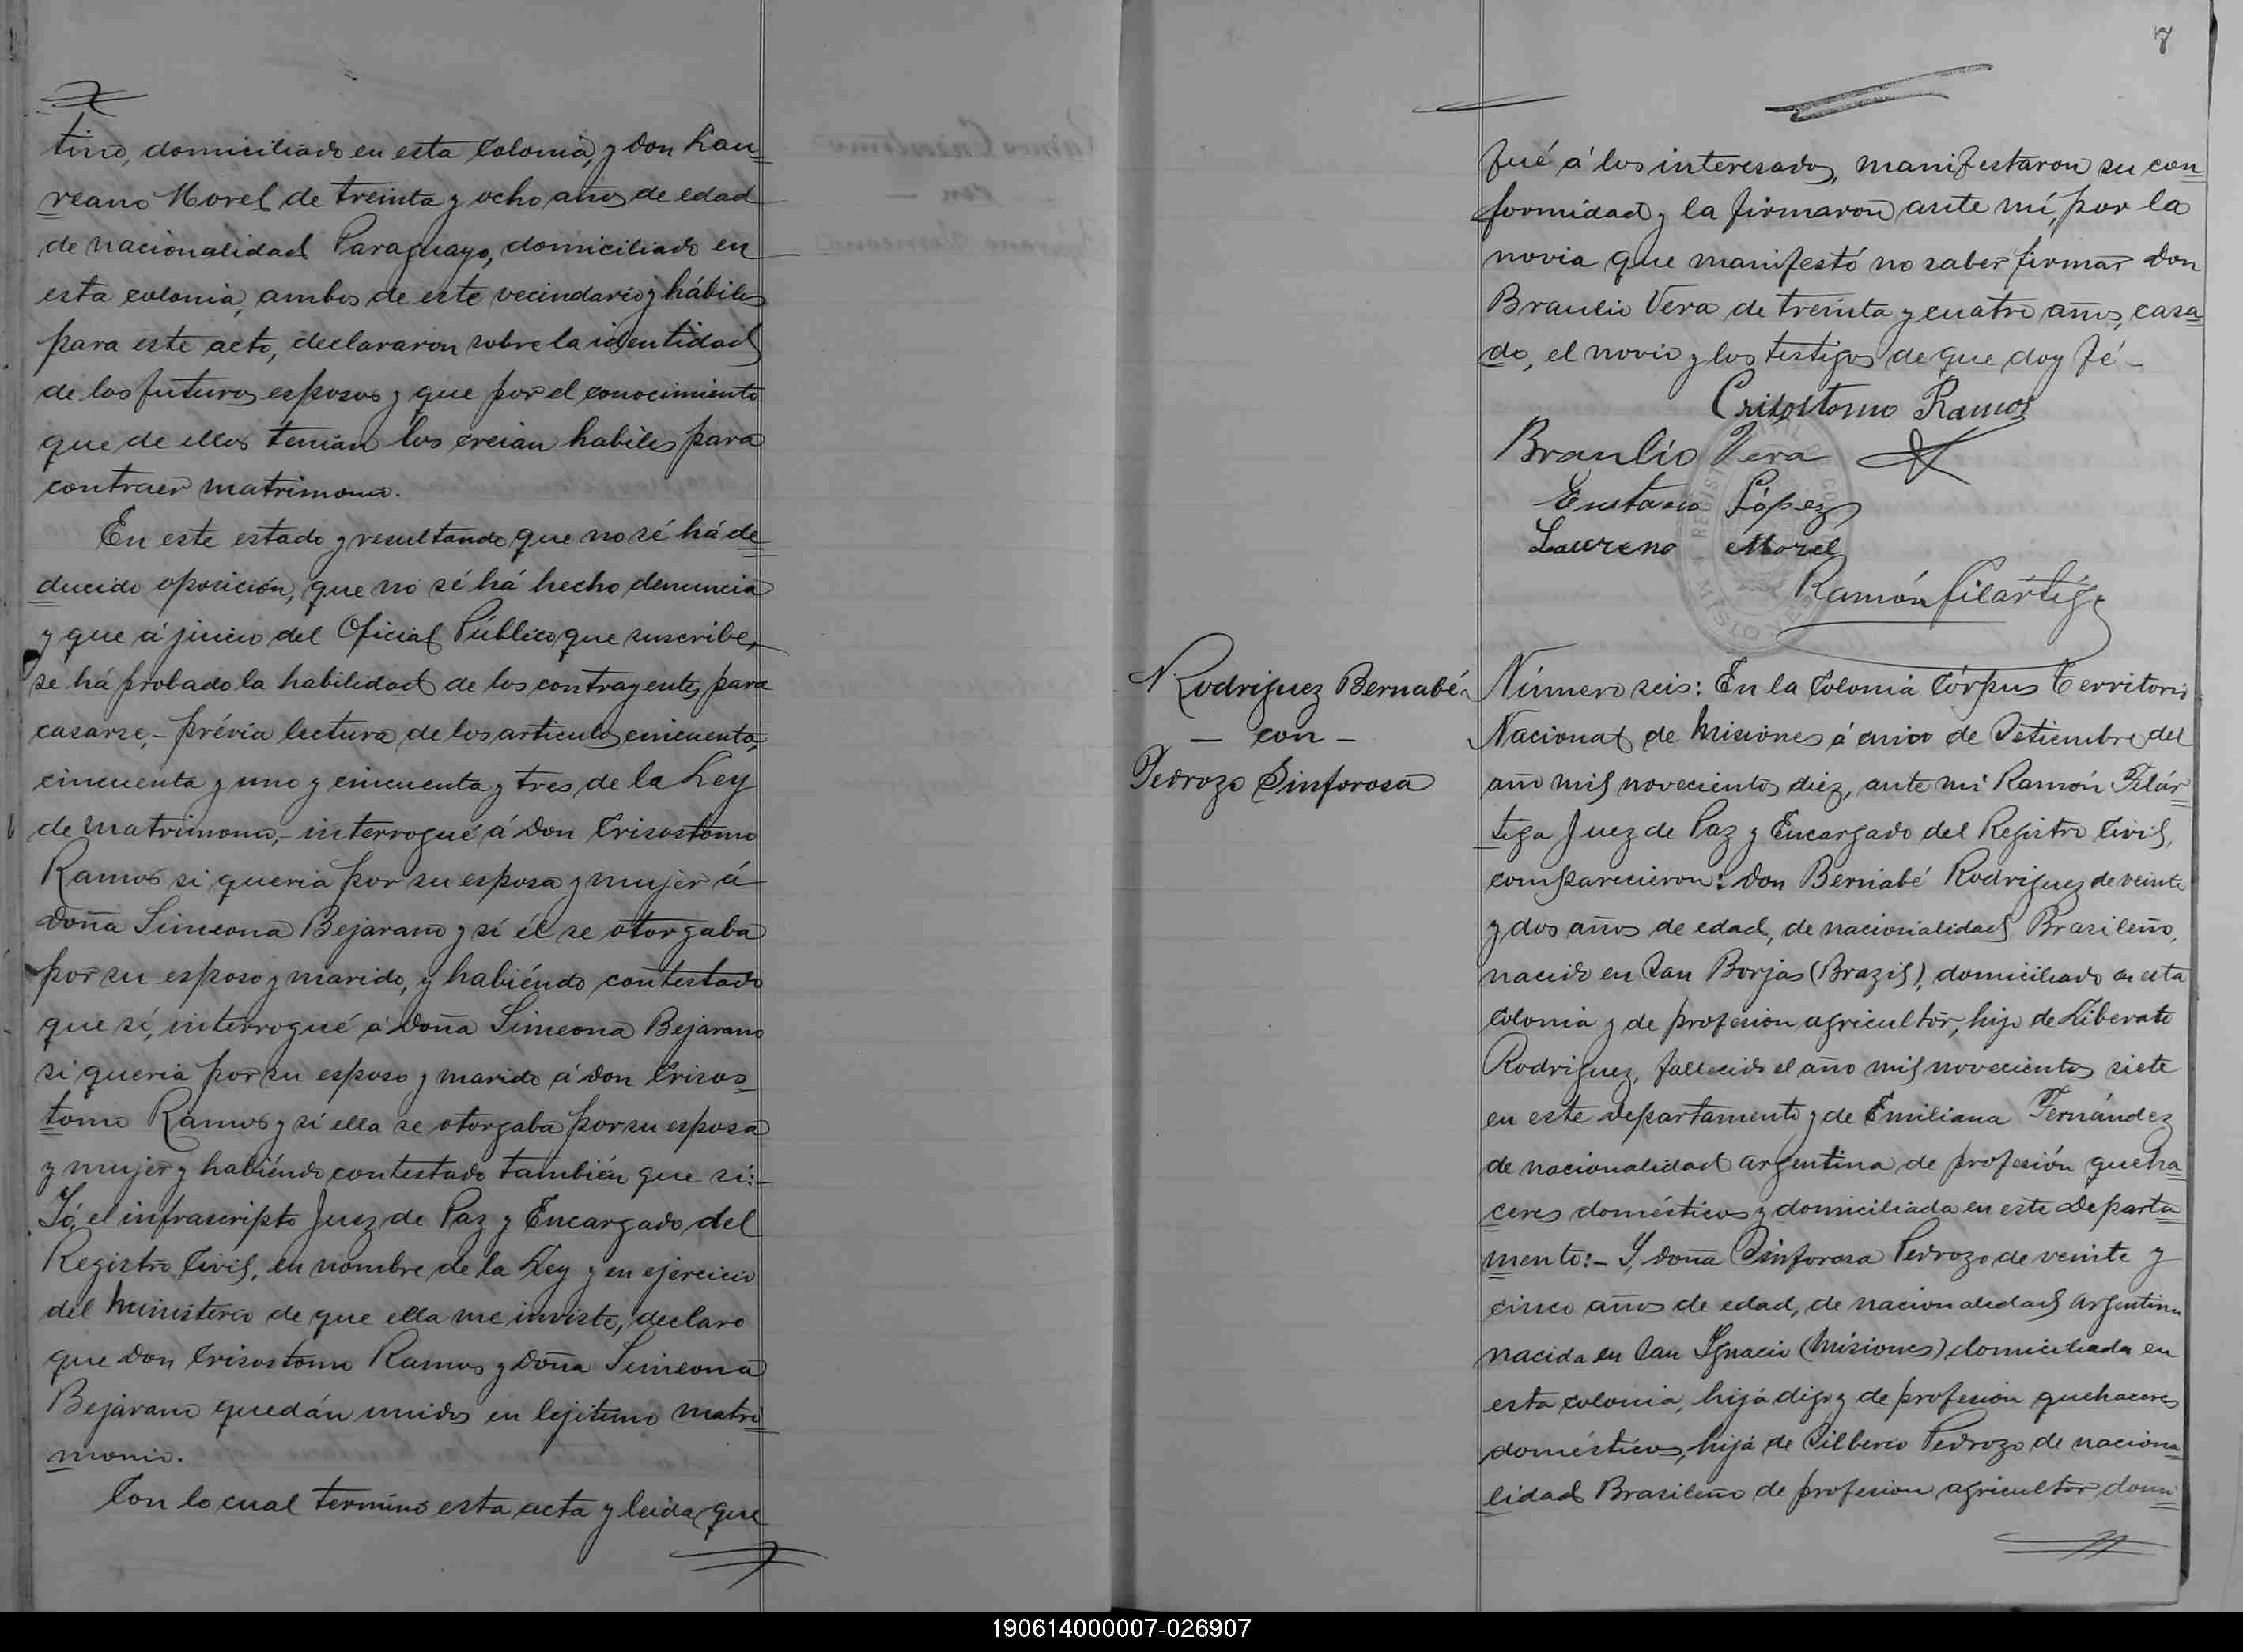 tino, domiciliado en esta Colonia, y Don Lau=
reano Morel de treinta y ocho años de edad
de nacionalidad Paraguayo, domiciliado en
esta colonia, ambos de este vecindario y hábiles
para este acto, declararon sobre la identidad
de los futuros esposos y que por el conocimiento
que de ellos tenian los creian habiles para
contraer matrimonio.
En este estado y resultando que no sé há de=
ducido oposición, que no sé há hecho denuncia
y que á juicio del Oficial Público que suscribe,
se há probado la habilidad de los contrayentes para
casarse,- prévia lectura de los articulos cincuenta,
cincuenta y uno y cincuenta y tres de la Ley
de Matrimonio,- interrogué á Don Crisostomo
Ramos si queria por su esposa y mujer á
Doña Simeona Bejarano y si él se otorgaba
por su esposo y marido, y habiéndo contestado
que sí, interrogué á Doña Simeona Bejarano
si queria por su esposo y marido á Don Crisos=
tomo Ramos y si ella se otorgaba por su esposa
y mujer y habiéndo contestado también que si:-
Yó, el infrascripto Juez de Paz y Encargado del
Registro Civil, en nombre de la Ley y en ejercicio
del Ministerio de que ella me inviste, declaro
que Don Crisostomo Ramos y Doña Simeona
Bejarano quedán unidos en lejitimo matri=
monio.
Con lo cual terminó esta acta y leida que
7
fué á los interesados, manifestaron su con=
formidad y la firmaron ante mí, por la
novia que manifestó no saber firmar Don
Braulio Vera de treinta y cuatro años, casa=
do, el novio y los testigos de que doy fé-
Crisostomo Ramos
Braulio Vera
Eustacio López
Laureno Morel
Ramón Filártiga
Rodriguez Bernabé
- con -
Pedrozo Sinforosa
Número seis: En la Colonia Córpus Territorio
Nacional de Misiones á cinco de Setiembre del
año mil novecientos diez, ante mi Ramón Filár=
tiga Juez de Paz y Encargado del Registro Civil,
comparecieron: Don Bernabé Rodriguez de veinte
y dos años de edad, de nacionalidad Brasileño,
nacido en San Borjas (Brazil), domiciliado en esta
Colonia y de profesion agricultor, hijo de Liberato
Rodriguez, fallecido el año mil novecientos siete
en este departamento y de Emiliana Fernández
de nacionalidad argentina de profesión queha=
ceres domésticos y domiciliada en este Departa=
mento:- Y, Doña Sinforosa Pedrozo de veinte y
cinco años de edad, de nacionalidad argentina
nacida en San Ignacio (Misiones) domiciliada en
esta colonia, hija digo y de profesion quehaceres
domésticos, hija de Silberio Pedrozo de naciona=
lidad Brasileño de profesion agricultor domi=
190614000007-026907